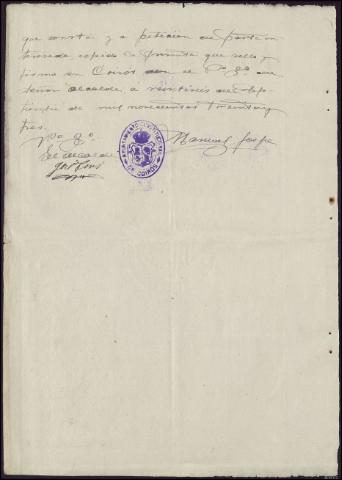 que consta y a petición de parte in
teresada expido la presente que sello y
firmo en Coirós con el Vº Bº del
Señor Alcalde a veintiseis de Sep-
tiembre de mil novecientos treinta y
tres.
Vº Bº
El Alcalde
Manuel
AYUNTAMIENTO
DE COIROS